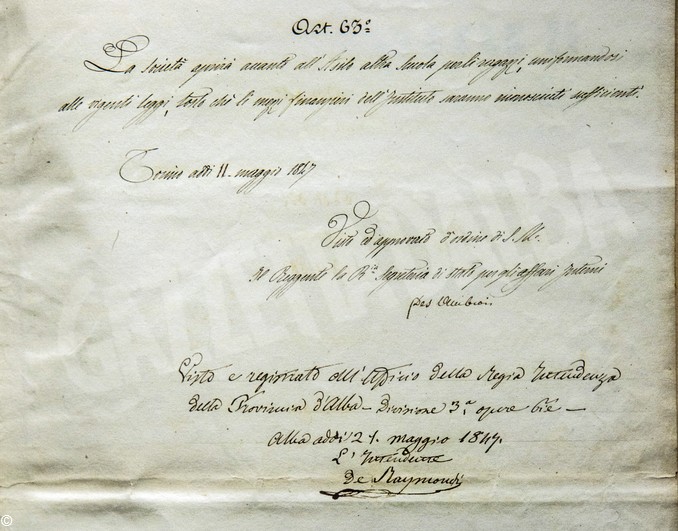 Art. 63º
La Società aprirà accanto all'Asilo altra Scuola per li ragazzi, uniformandosi
alle vigenti leggi, tosto chè li mezzi finanzieri dell'Instituto saranno riconosciuti sufficienti.
Torino addì 11. maggio 1847
Visto ed approvato d'ordine di S. M.
Il Reggente la Rª Segreteria di Stato per gli affari Interni
Des Ambrois
Visto e registrato all'Ufficio della Regia Intendenza
della Provincia d'Alba - Divisione 3ª opere Pie -
Alba addì 21. maggio 1847.
L'Intendente
De Raymondi
GAZZETTA D'ALBA
©